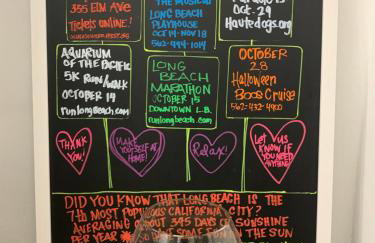 355 Elm Ave
Tickets online!
THE MUSICAL
LONG BEACH
PLAYHOUSE
OCT 14 - NOV 18
562-494-1014
Oct. 29
Hautedogs.org
AQUARIUM
OF THE PACIFIC
5K RUN/WALK
OCTOBER 14
runlongbeach.com
LONG
BEACH
MARATHON
OCTOBER 15
DOWNTOWN L.B.
runlongbeach.com
OCTOBER
28
Halloween
Boos Cruise
562-432-4900
THANK
YOU!
MAKE
YOURSELF AT
HOME!
Relax!
LET US
KNOW IF
YOU NEED
ANYTHING!
DID YOU KNOW THAT LONG BEACH IS THE
7th MOST POPULOUS CALIFORNIA CITY?
AVERAGING ABOUT 345 DAYS OF SUNSHINE
PER YEAR SO GET SOME FUN IN THE SUN